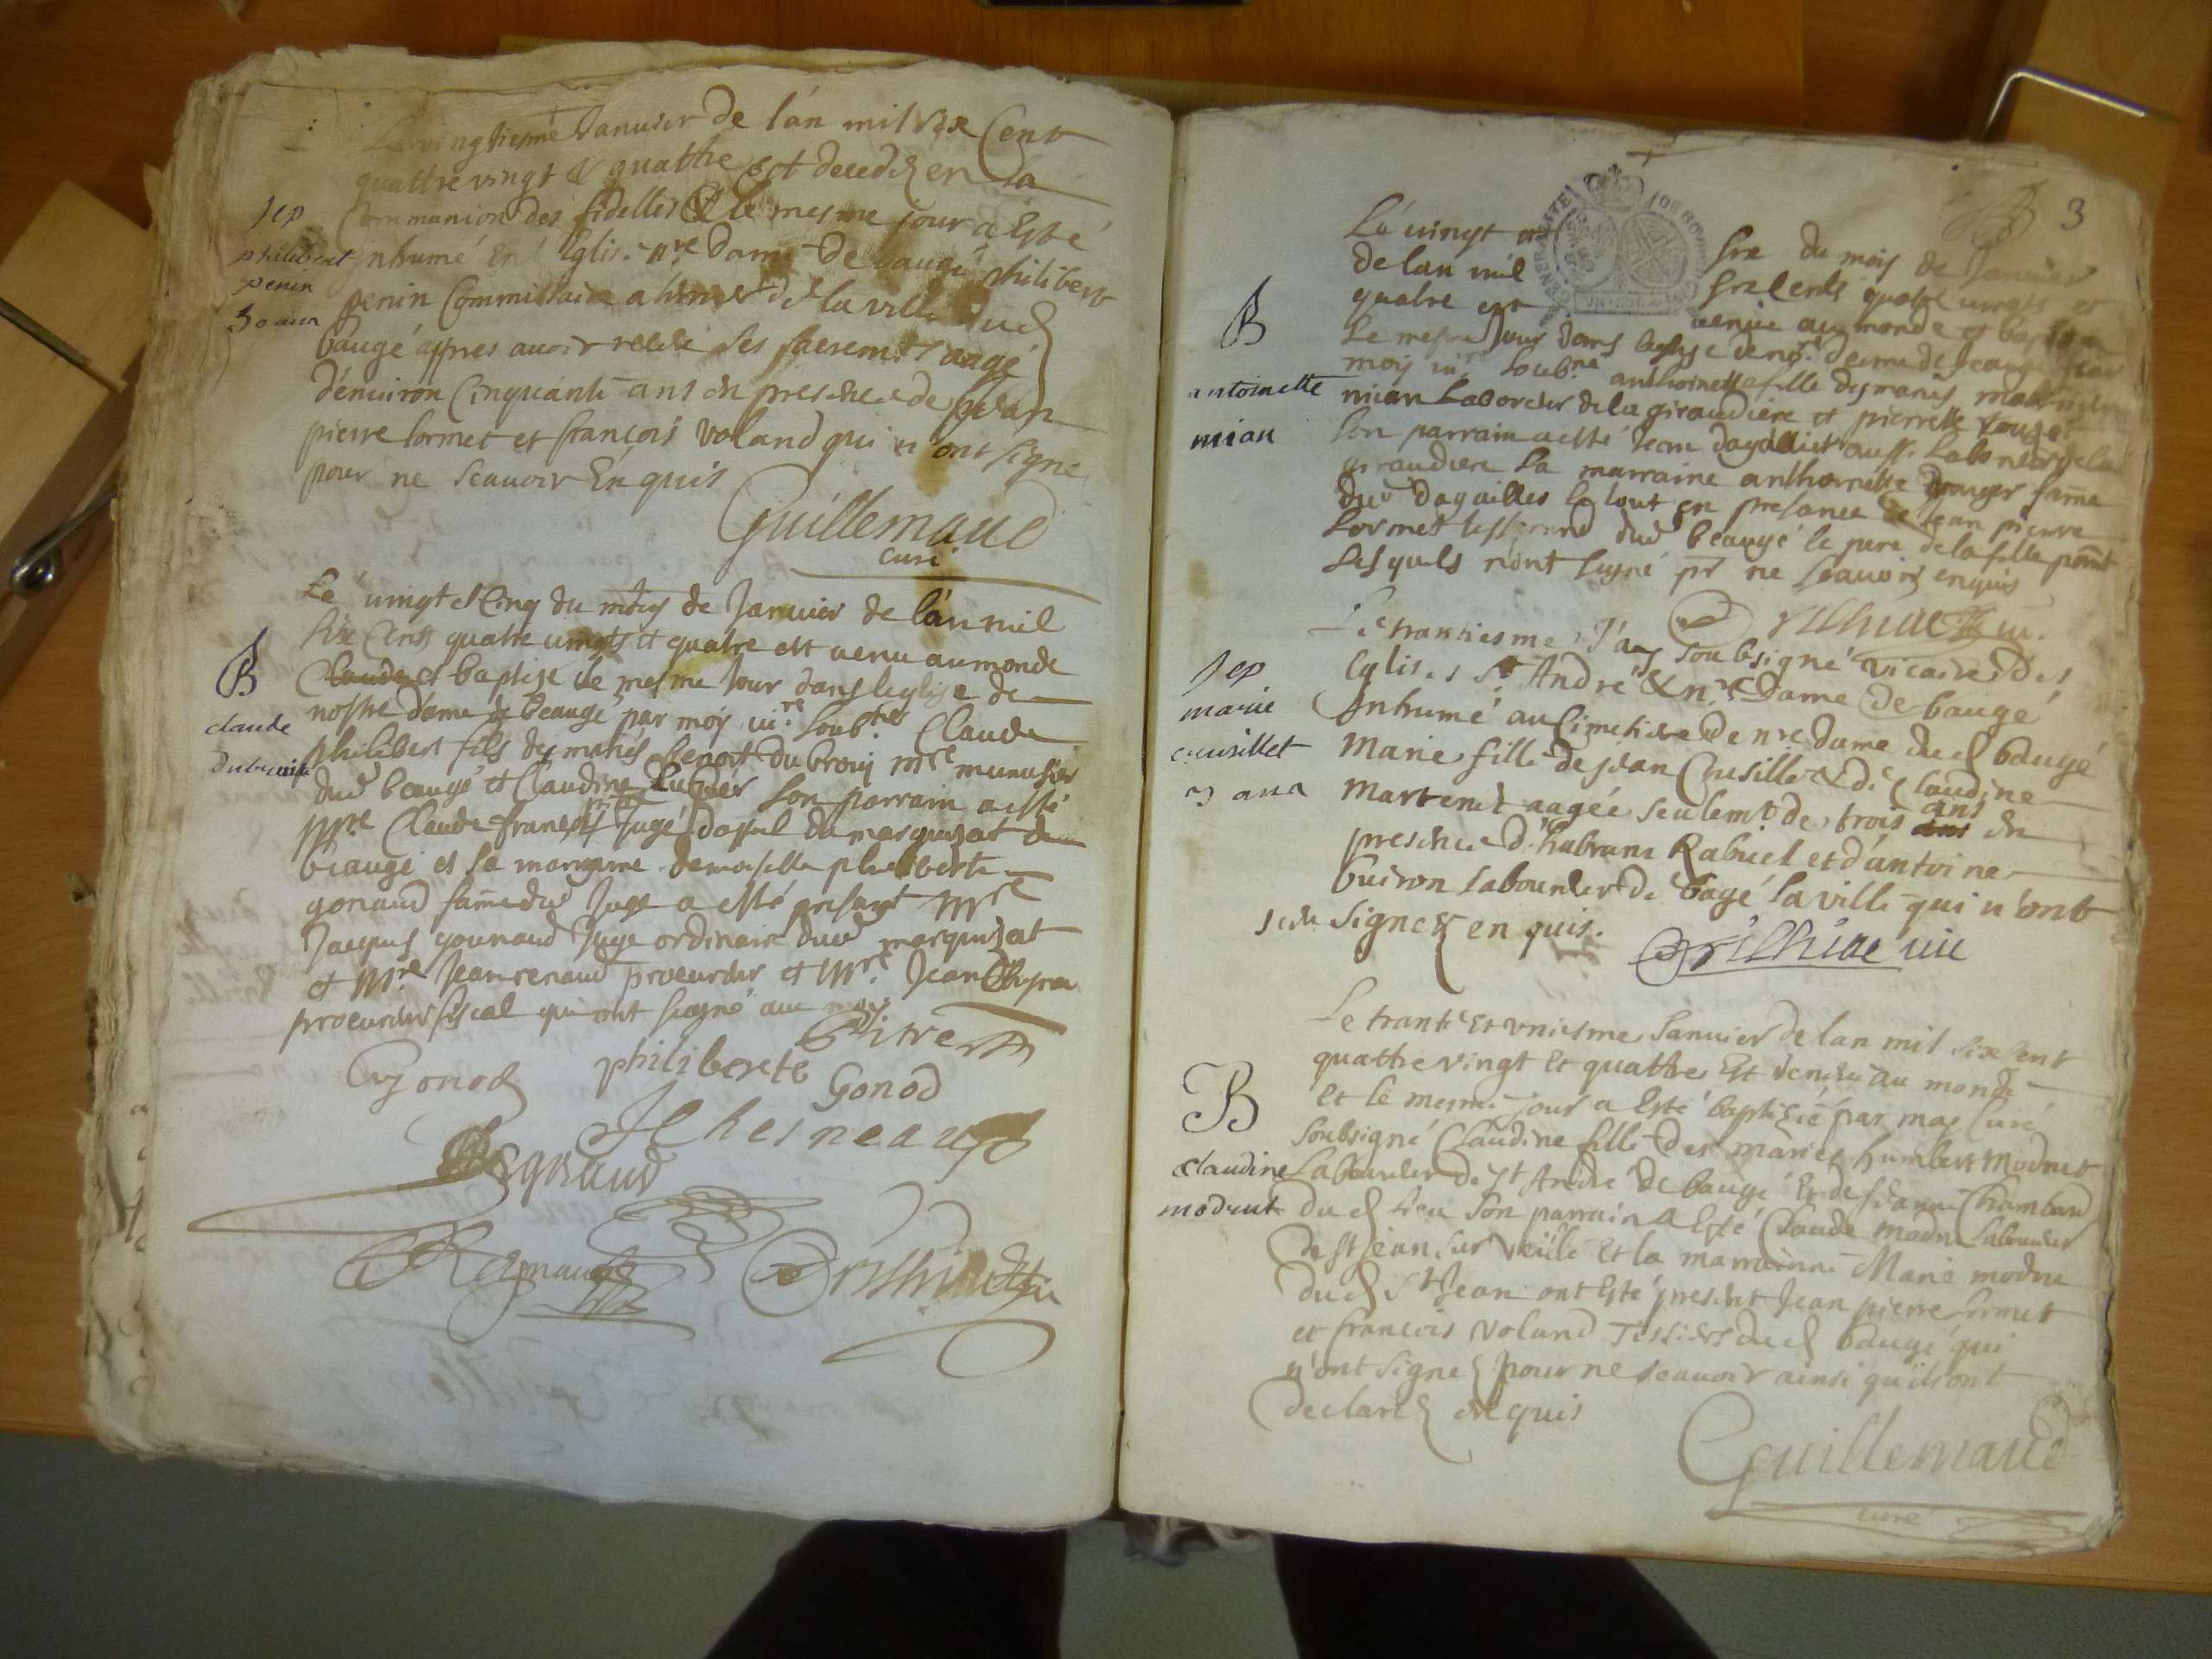 Le vingtiesme Januier de l'an mil six Cent
quattre vingt & quattre est decedé en la
Communion des fidelles & le mesme jour a Esté
Sep
philibert
penin
50 ans
Inhumé En l'Eglise nre Dame De baugé philibert
penin Commissaire a de la ville dud
baugé appres auoir receu ses sacremts aagé
d'enuiron Cinquante ans en presence de jean
pierre lormet et françois Voland qui n'ont signé
pour ne scauoir Enquis
Guillemaud
curé
Le vingt et cinq du mois de Januier de l'an mil
Six Cents quatre vingts et quatre est venu au monde
B
claude
et baptisé le mesme Jour dans leglise de
nostre dame de beaugé par moy vic.re soub.né Claude
philibert fils des mariés benoit du brouy mre munusier
dud beaugé et Claudine son parrain a esté
Mre Claude françois Jugé dapel du marquisat de
beaugé et sa marraine demoiselle philiberte
gonaud fame dud Juge a esté present Mre
Jacques gounaud Juge ordinaire dud marquisat
et Mre Jean renaud procureur et Mre Jean
procureur fiscal qui ont signé auec moy
Gonod
philiberte Gonod
J Chesneau
3
Le vingt
de lan mil
quatre est
du mois de Januier
six Cents quatre vingts et
venue au monde et baptisée
B
antoinette
mian
Le mesme Jour dans leglise de nore dame de beaugé par
moy vicre soub.né anthoinette fille des mariés
mian Laboreur de la giraudiere et pierrette
Son parrain a esté Jean dagaillier aussi Laboreur de la
giraudiere Sa marraine anthoinette fame
dud dagailler le tout en presance de Jean pierre
Lormet dud beaugé le pere de la fille
Lesquels n'ont signé pr ne scauoir enquis
Le trantiesme J'ay soubsigné vicaire des
Sep
marie
cusillet
3 ans
Eglises St André & nre Dame de baugé
Inhumé au Cimetiere de nre dame dud baugé
Marie fille de jean Cusillet & de Claudine
Martenet aagée seulemt de trois ans en
presence d'habram Rabuel et d'antoine
buiron laboureur de bagé la ville qui n'ont
sceu signer en quis.
vic
Le trante Et vniesme Januier de lan mil six Cent
quattre vingt Et quattre Est venue au monde
B
claudine
Et le mesme jour a Esté baptisée par moy Curé
soubsigné Claudine fille des mariés humbert modnet
Laboureur de St André de baugé Et de jeanne Chamband
dud lieu Son parrain a Esté Claude laboureur
De St jean sur Veille Et la marraine Marie
dud St Jean ont Esté present Jean pierre lormet
et françois Voland Tissiers dud baugé qui
n'ont signé pour ne scauoir ainsi qu'ils ont
declaré enquis
Guillemaud
curé